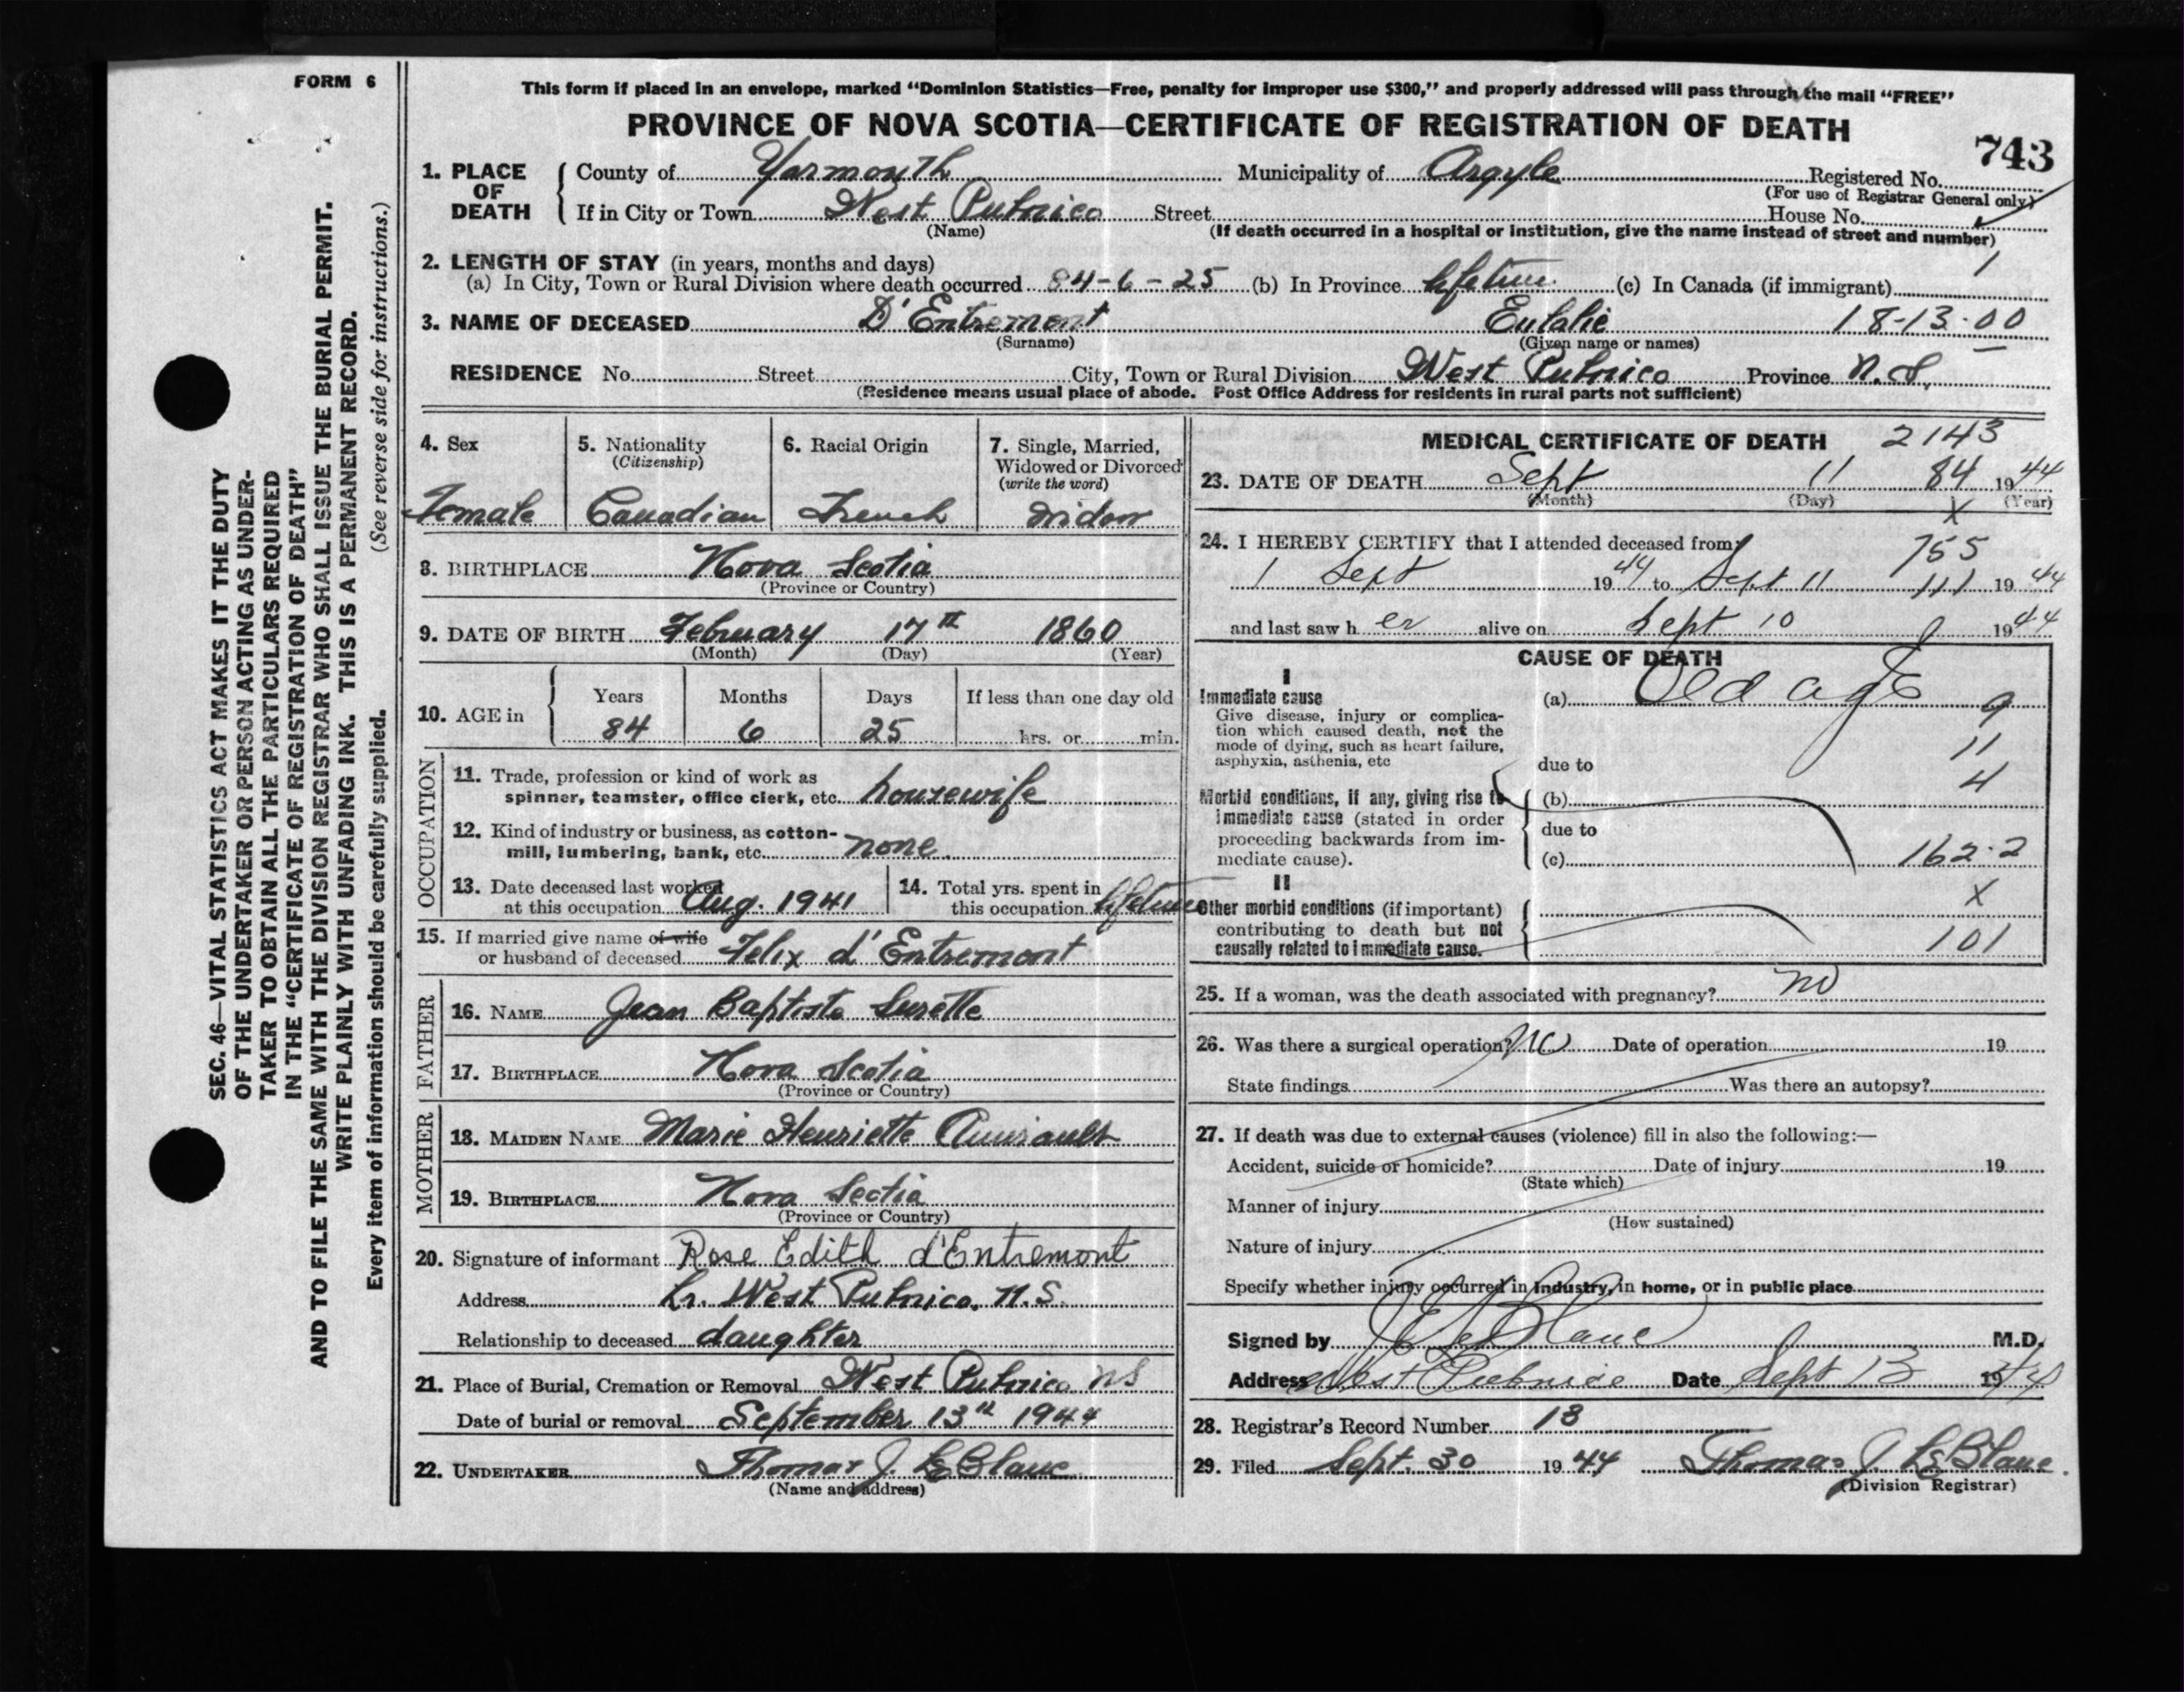 FORM 6
This form if placed in an envelope, marked “Dominion Statistics—Free, penalty for improper use $300,” and properly addressed will pass through the mail “FREE”
PROVINCE OF NOVA SCOTIA—CERTIFICATE OF REGISTRATION OF DEATH
743
1. PLACE OF DEATH
County of Yarmouth Municipality of Argyle Registered No.
(For use of Registrar General only)
If in City or Town West Pubnico Street House No.
(Name) (If death occurred in a hospital or institution, give the name instead of street and number)
2. LENGTH OF STAY (in years, months and days) 1
(a) In City, Town or Rural Division where death occurred 84-6-25 (b) In Province lifetime (c) In Canada (if immigrant)
3. NAME OF DECEASED D'Entremont Eulalie 18-13-00
(Surname) (Given name or names)
RESIDENCE No. Street City, Town or Rural Division West Pubnico Province N.S.
(Residence means usual place of abode. Post Office Address for residents in rural parts not sufficient)
4. Sex
Female
5. Nationality
(Citizenship)
Canadian
6. Racial Origin
French
7. Single, Married,
Widowed or Divorced
(write the word)
widow
8. BIRTHPLACE Nova Scotia
(Province or Country)
9. DATE OF BIRTH February 17th 1860
(Month) (Day) (Year)
10. AGE in
Years Months Days If less than one day old
84 6 25 hrs. or min.
OCCUPATION
11. Trade, profession or kind of work as
spinner, teamster, office clerk, etc. housewife
12. Kind of industry or business, as cotton-
mill, lumbering, bank, etc. none
13. Date deceased last worked
at this occupation Aug. 1941
14. Total yrs. spent in
this occupation lifetime
15. If married give name of wife
or husband of deceased Felix d'Entremont
FATHER
16. NAME Jean Baptiste Surette
17. BIRTHPLACE Nova Scotia
(Province or Country)
MOTHER
18. MAIDEN NAME Marie Henriette Amirault
19. BIRTHPLACE Nova Scotia
(Province or Country)
20. Signature of informant Rose Edith d'Entremont
Address Lr. West Pubnico. N.S.
Relationship to deceased daughter
21. Place of Burial, Cremation or Removal West Pubnico NS
Date of burial or removal September 13th 1944
22. UNDERTAKER Thomas J. LeBlanc
(Name and address)
MEDICAL CERTIFICATE OF DEATH 2143
23. DATE OF DEATH Sept 11 84 1944
(Month) (Day) (Year)
X
24. I HEREBY CERTIFY that I attended deceased from 755
1 Sept 1944 to Sept 11 111 1944
and last saw her alive on Sept 10 1944
CAUSE OF DEATH
I
Immediate cause
Give disease, injury or complica-
tion which caused death, not the
mode of dying, such as heart failure,
asphyxia, asthenia, etc
(a) Old age
9
11
due to
4
Morbid conditions, if any, giving rise to
immediate cause (stated in order
proceeding backwards from im-
mediate cause).
(b)
due to
(c) 162.2
II
X
Other morbid conditions (if important)
contributing to death but not
causally related to immediate cause.
101
25. If a woman, was the death associated with pregnancy? no
26. Was there a surgical operation? No Date of operation 19
State findings Was there an autopsy?
27. If death was due to external causes (violence) fill in also the following:—
Accident, suicide or homicide? Date of injury 19
(State which)
Manner of injury
(How sustained)
Nature of injury
Specify whether injury occurred in Industry, in home, or in public place
Signed by LeBlanc M.D.
Address West Pubnico Date Sept 13 1944
28. Registrar's Record Number 13
29. Filed Sept. 30 1944 Thomas J. LeBlanc.
(Division Registrar)
SEC. 46—VITAL STATISTICS ACT MAKES IT THE DUTY
OF THE UNDERTAKER OR PERSON ACTING AS UNDER-
TAKER TO OBTAIN ALL THE PARTICULARS REQUIRED
IN THE “CERTIFICATE OF REGISTRATION OF DEATH”
AND TO FILE THE SAME WITH THE DIVISION REGISTRAR WHO SHALL ISSUE THE BURIAL PERMIT.
WRITE PLAINLY WITH UNFADING INK. THIS IS A PERMANENT RECORD.
Every item of information should be carefully supplied. (See reverse side for instructions.)